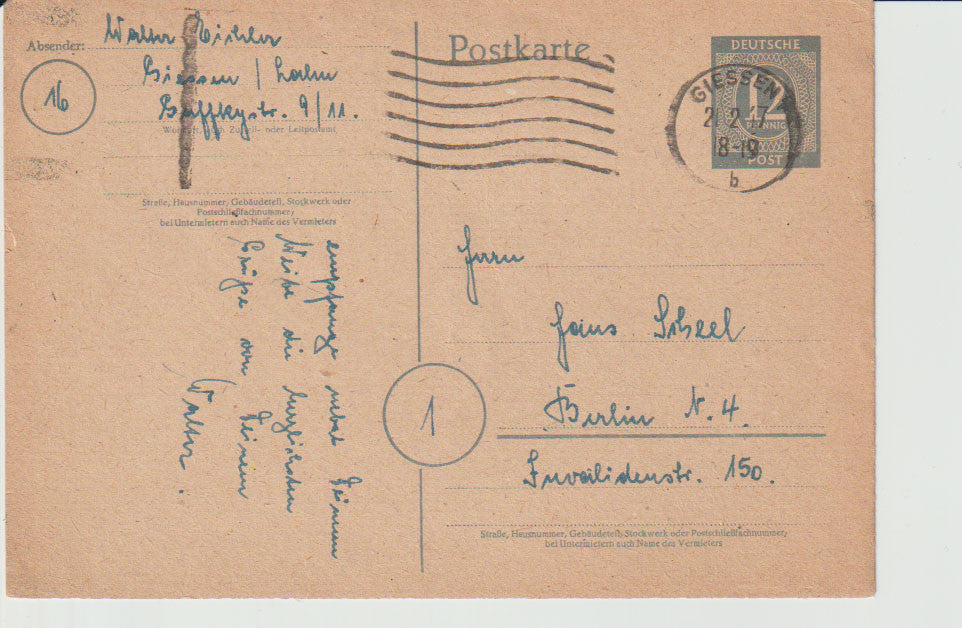 Absender:
Walter Eichler
16
Giessen / Lahn
Gaffkystr. 9/11.
Wohnort, auch Zustell- oder Leitpostamt
Straße, Hausnummer, Gebäudeteil, Stockwerk oder
Postschließfachnummer;
bei Untermietern auch Name des Vermieters
Postkarte
DEUTSCHE
12
PFENNIG
POST
GIESSEN
2.2.47
18-19
b
Herrn
Hans Scheel
1
Berlin N. 4.
Invalidenstr. 150.
Straße, Hausnummer, Gebäudeteil, Stockwerk oder Postschließfachnummer;
bei Untermietern auch Name des Vermieters
empfange nebst Deinem
Weibe die herzlichsten
Grüße von Deinem
Walter.